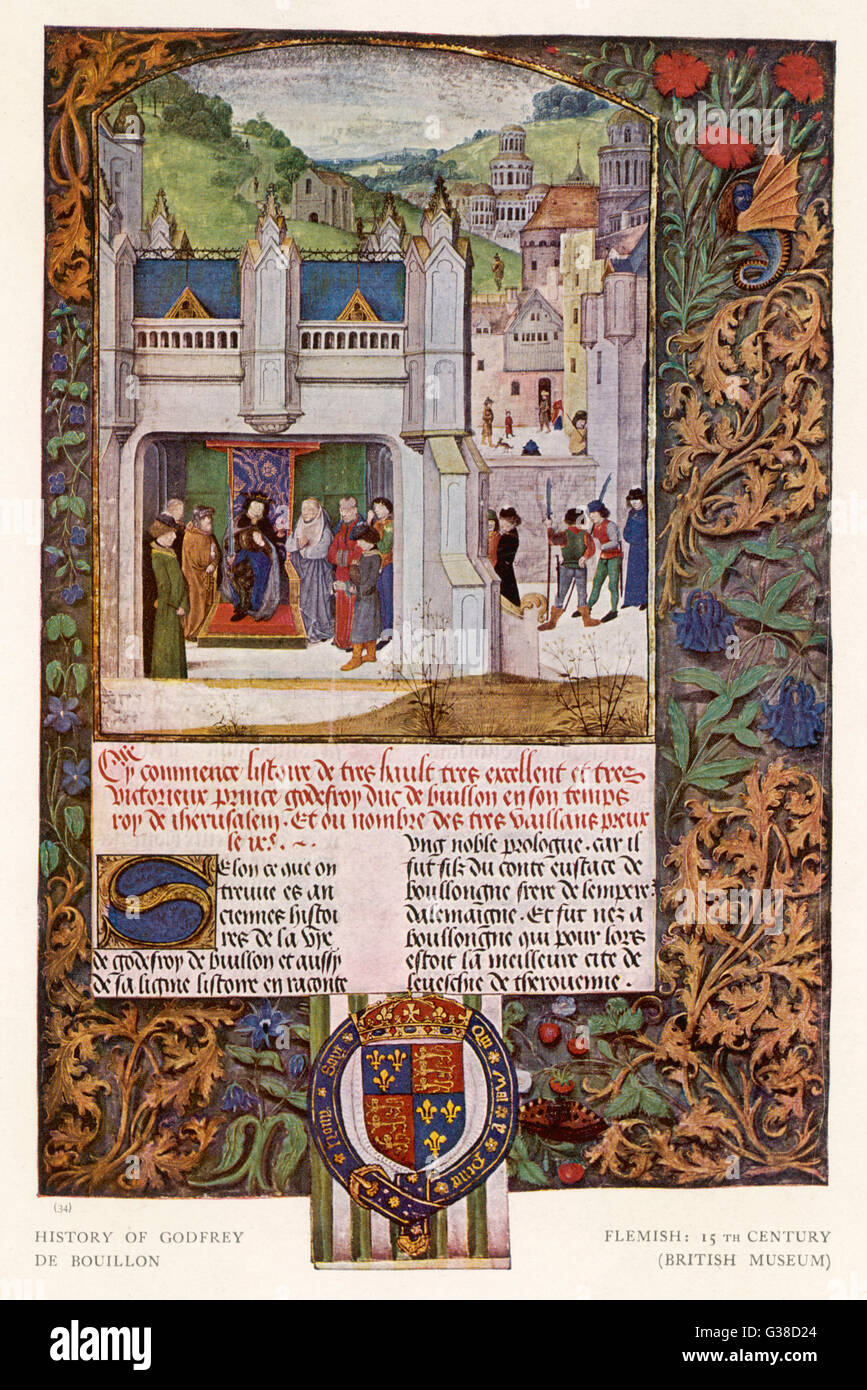 Cy commence listoire de tres hault tres excellent et tres
victorieux prince godefroy duc de buillon en son temps
roy de iherusalem. Et ou nombre des tres vaillans preux
le ixe.
Selon ce que on
treuue es an
ciennes histoi
res de la vie
de godefroy de buillon et aussy
de sa ligne listoire en raconte
vng noble prologue. Car il
fut filz du conte eustace de
boullongne frere de lempere
dalemaigne. Et fut nez a
boullongne qui pour lors
estoit la meilleure cite de
leueschie de therouenne.
Hony Soyt Qui Mal y Pense
(34)
HISTORY OF GODFREY
DE BOUILLON
FLEMISH: 15 TH CENTURY
(BRITISH MUSEUM)
alamy
alamy
Image ID: G38D24
www.alamy.com